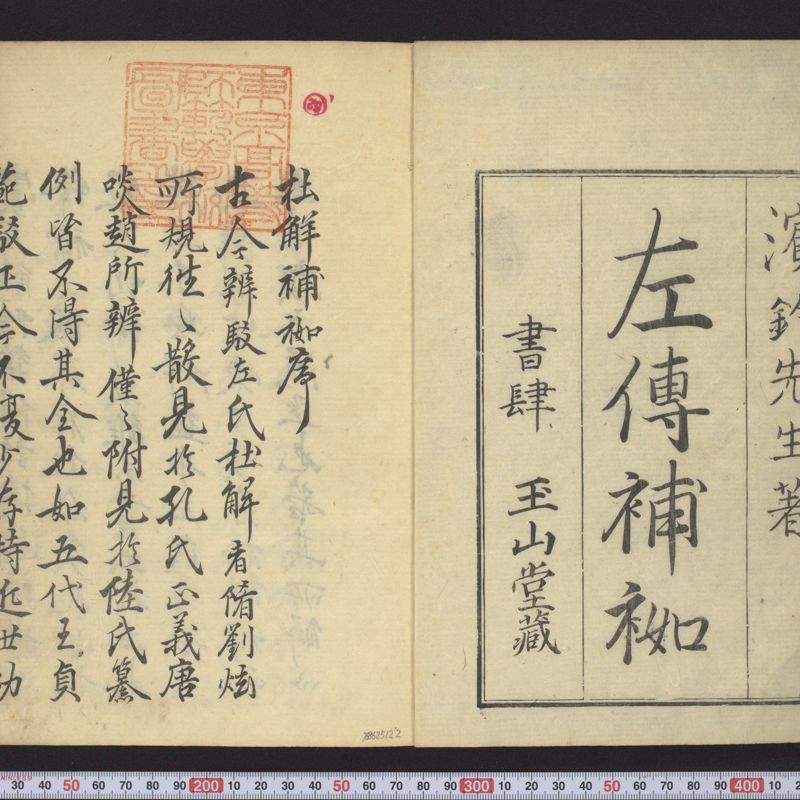 濱鈴先生著
左傳補袽
書肆 玉山堂藏
杜解補袽序
古今辨駁左氏杜解者隋劉炫
所規徃〻散見於孔氏正義唐
啖趙所辨僅〻附見於陸氏纂
例皆不得其全也如五代王貞
範駁正今不
東京高等
師範學校
圖書
30 40 50 60 70 80 90 200 10 20 30 40 50 60 70 80 90 300 10 20 30 40 50 60 70 80 90 400 10